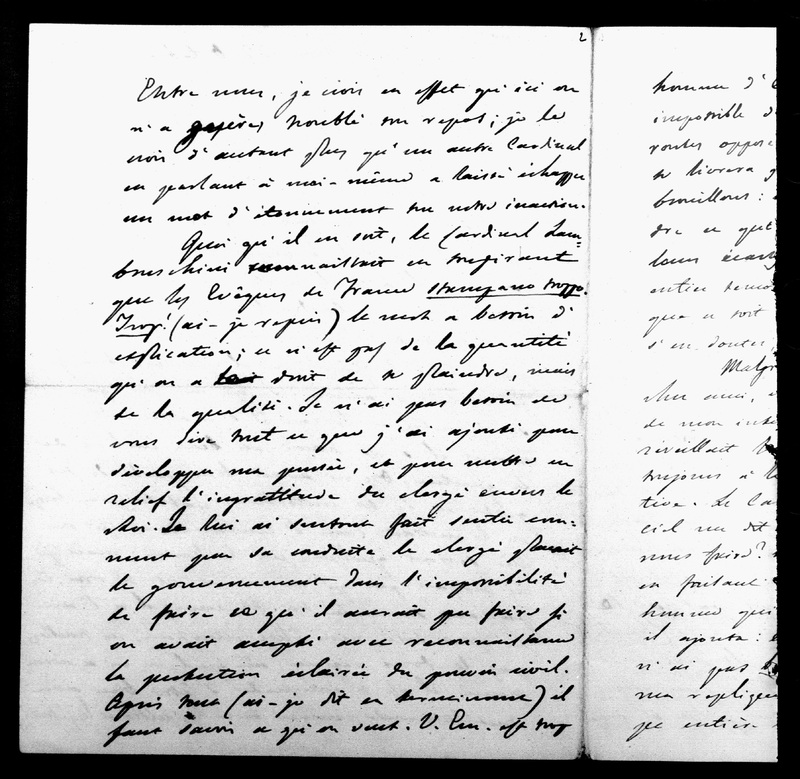 2
Entre nous, je crois en effet qu'ici on
n'a guères troublé son repos; je le
crois d'autant plus qu'un autre Cardinal
en parlant à moi-même a laissé échapper
un mot d'étonnement sur notre inaction.
Quoi qu'il en soit, le Cardinal Lam=
bruschini reconnaissait en soupirant
que les Evêques de France stampano troppo.
Trop! (ai-je repris) le mot a besoin d'
explication; ce n'est pas de la quantité
qu'on a droit de se plaindre, mais
de la qualité. Je n'ai pas besoin de
vous dire tout ce que j'ai ajouté pour
développer ma pensée, et pour mettre en
relief l'ingratitude du clergé envers le
Roi. Je lui ai surtout fait sentir com-
ment par sa conduite le clergé plaçait
le gouvernement dans l'impossibilité
de faire ce qu'il aurait pu faire si
on avait accepté avec reconnaissance
la protection éclairée du pouvoir civil.
Après tout (ai-je dit en terminant) il
faut savoir ce qu'on veut. V. Em. est trop
homme d'
impossible d
routes oppos
se livrera
brouillons:
dre ce qu'il
leurs écarts
entier
que ce soit
s'en douter,
Malgr
cher ami,
de mon inte
réveillait
toujours à
tive. Le Car
ciel me dit
nous faire?
en
homme qui
il ajouta:
n'ai pas
ma répliqu
pe entière